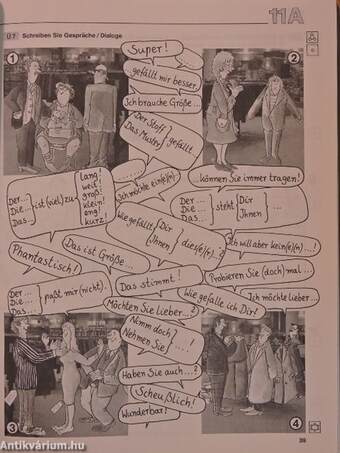 11A
Ü 7 Schreiben Sie Gespräche / Dialoge
1
2
Super!
...gefällt mir besser
Ich brauche Größe...
Der Stoff
Das Muster
gefällt
...können Sie immer tragen!
Der...
Die...
Das...
ist (viel) zu
lang!
weit!
groß!
klein!
eng!
kurz!
Ich möchte ein(e)(n)...
Wie gefällt
Dir
Ihnen
die(e)(n)...?
Der...
Die...
Das...
steht
Dir
Ihnen
...!
Ich will aber kein(e)(n)...!
Phantastisch!
Das ist Größe...
Das stimmt!
Probieren Sie (doch) mal...
Der...
Die...
Das...
paßt mir (nicht).
Möchten Sie lieber...?
Wie gefalle ich Dir?
Ich möchte lieber...
Nimm doch
Nehmen Sie
...!
Haben Sie auch...?
Scheußlich!
Wunderbar!
3
4
39
Antikvárium.hu